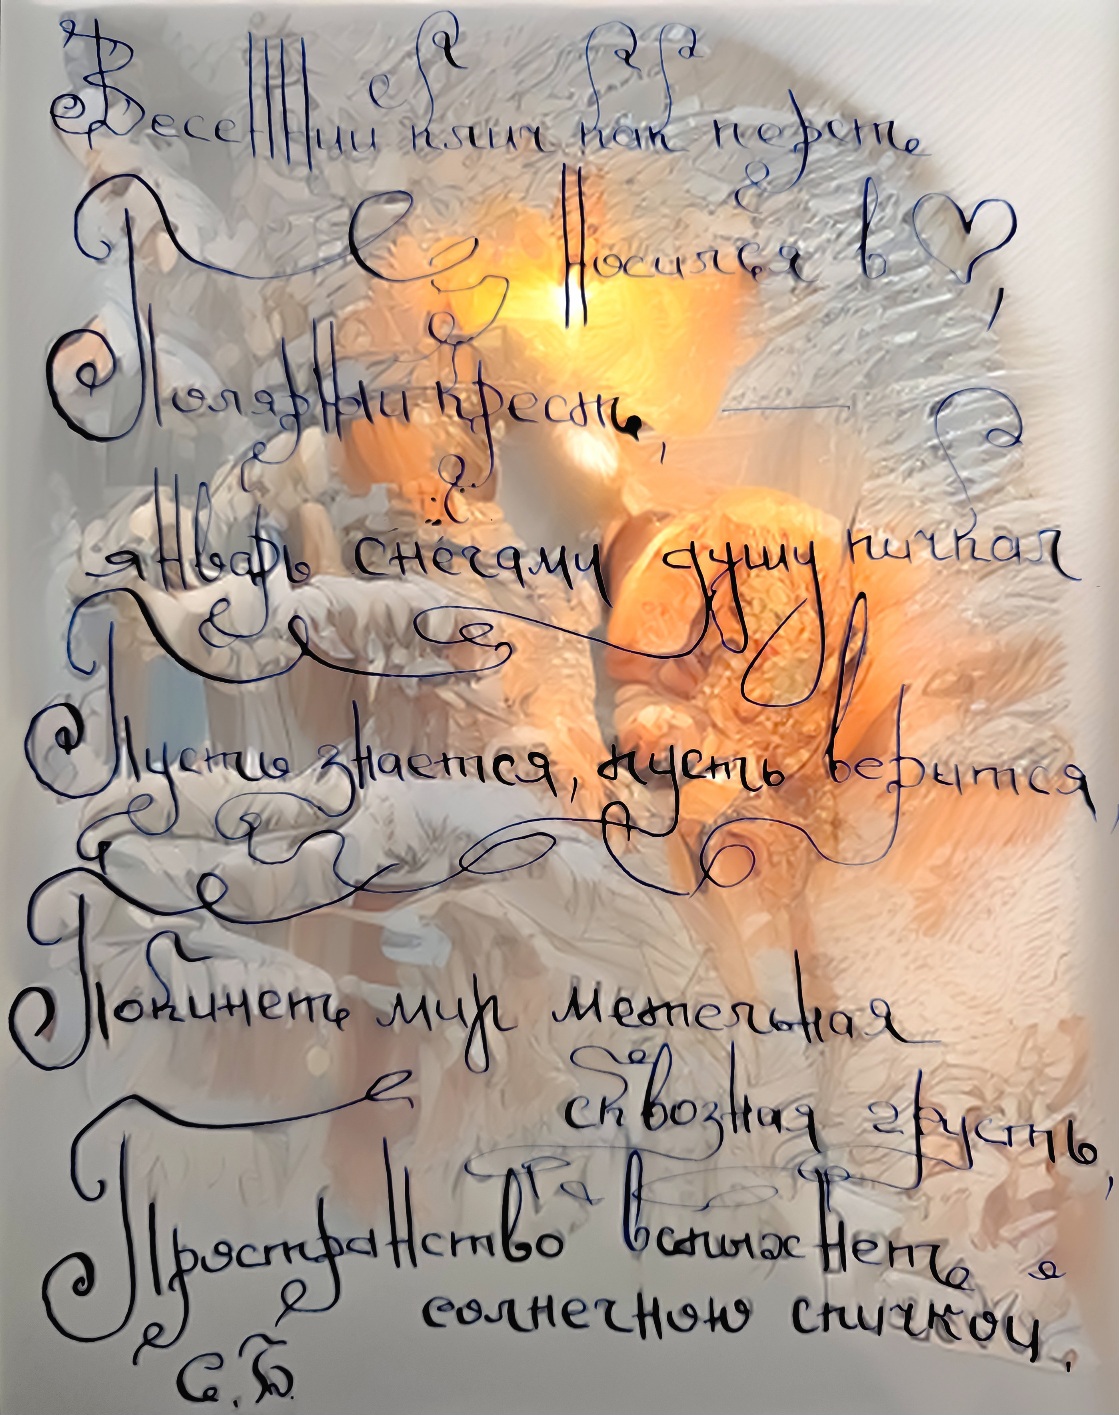 Весенний клич как перст
Носился в
Полярный крест, —
январь снегами душу пичкал
Пусть знается, пусть верится,
Покинет мир метельная
сквозная грусть,
Пространство вспыхнет
солнечною спичкой.
С.Б.